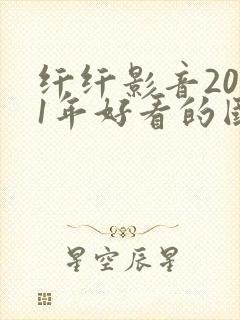 纤纤影音20
1年好看的国
星空辰星